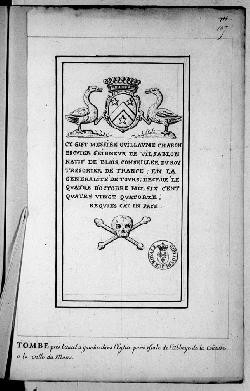 CY GIST MESSIRE GUILLAUME CHARON
ESCVIER SEIGNEUR DE VILSABLON
NATIF DE BLOIS, CONSEILLER DU ROY
TRESORIER DE FRANCE, EN LA
GENERALITE DE TOURS, DECEDE LE
QUATRE D'OCTOBRE MIL SIX CENT
QUATRE VINGT QUATORZE,
REQUIESCAT IN PACE
TOMBE pres l'autel a gauche dans l'Eglise paroissiale de l'Abbaye de la Couture
a la Ville du Mans.